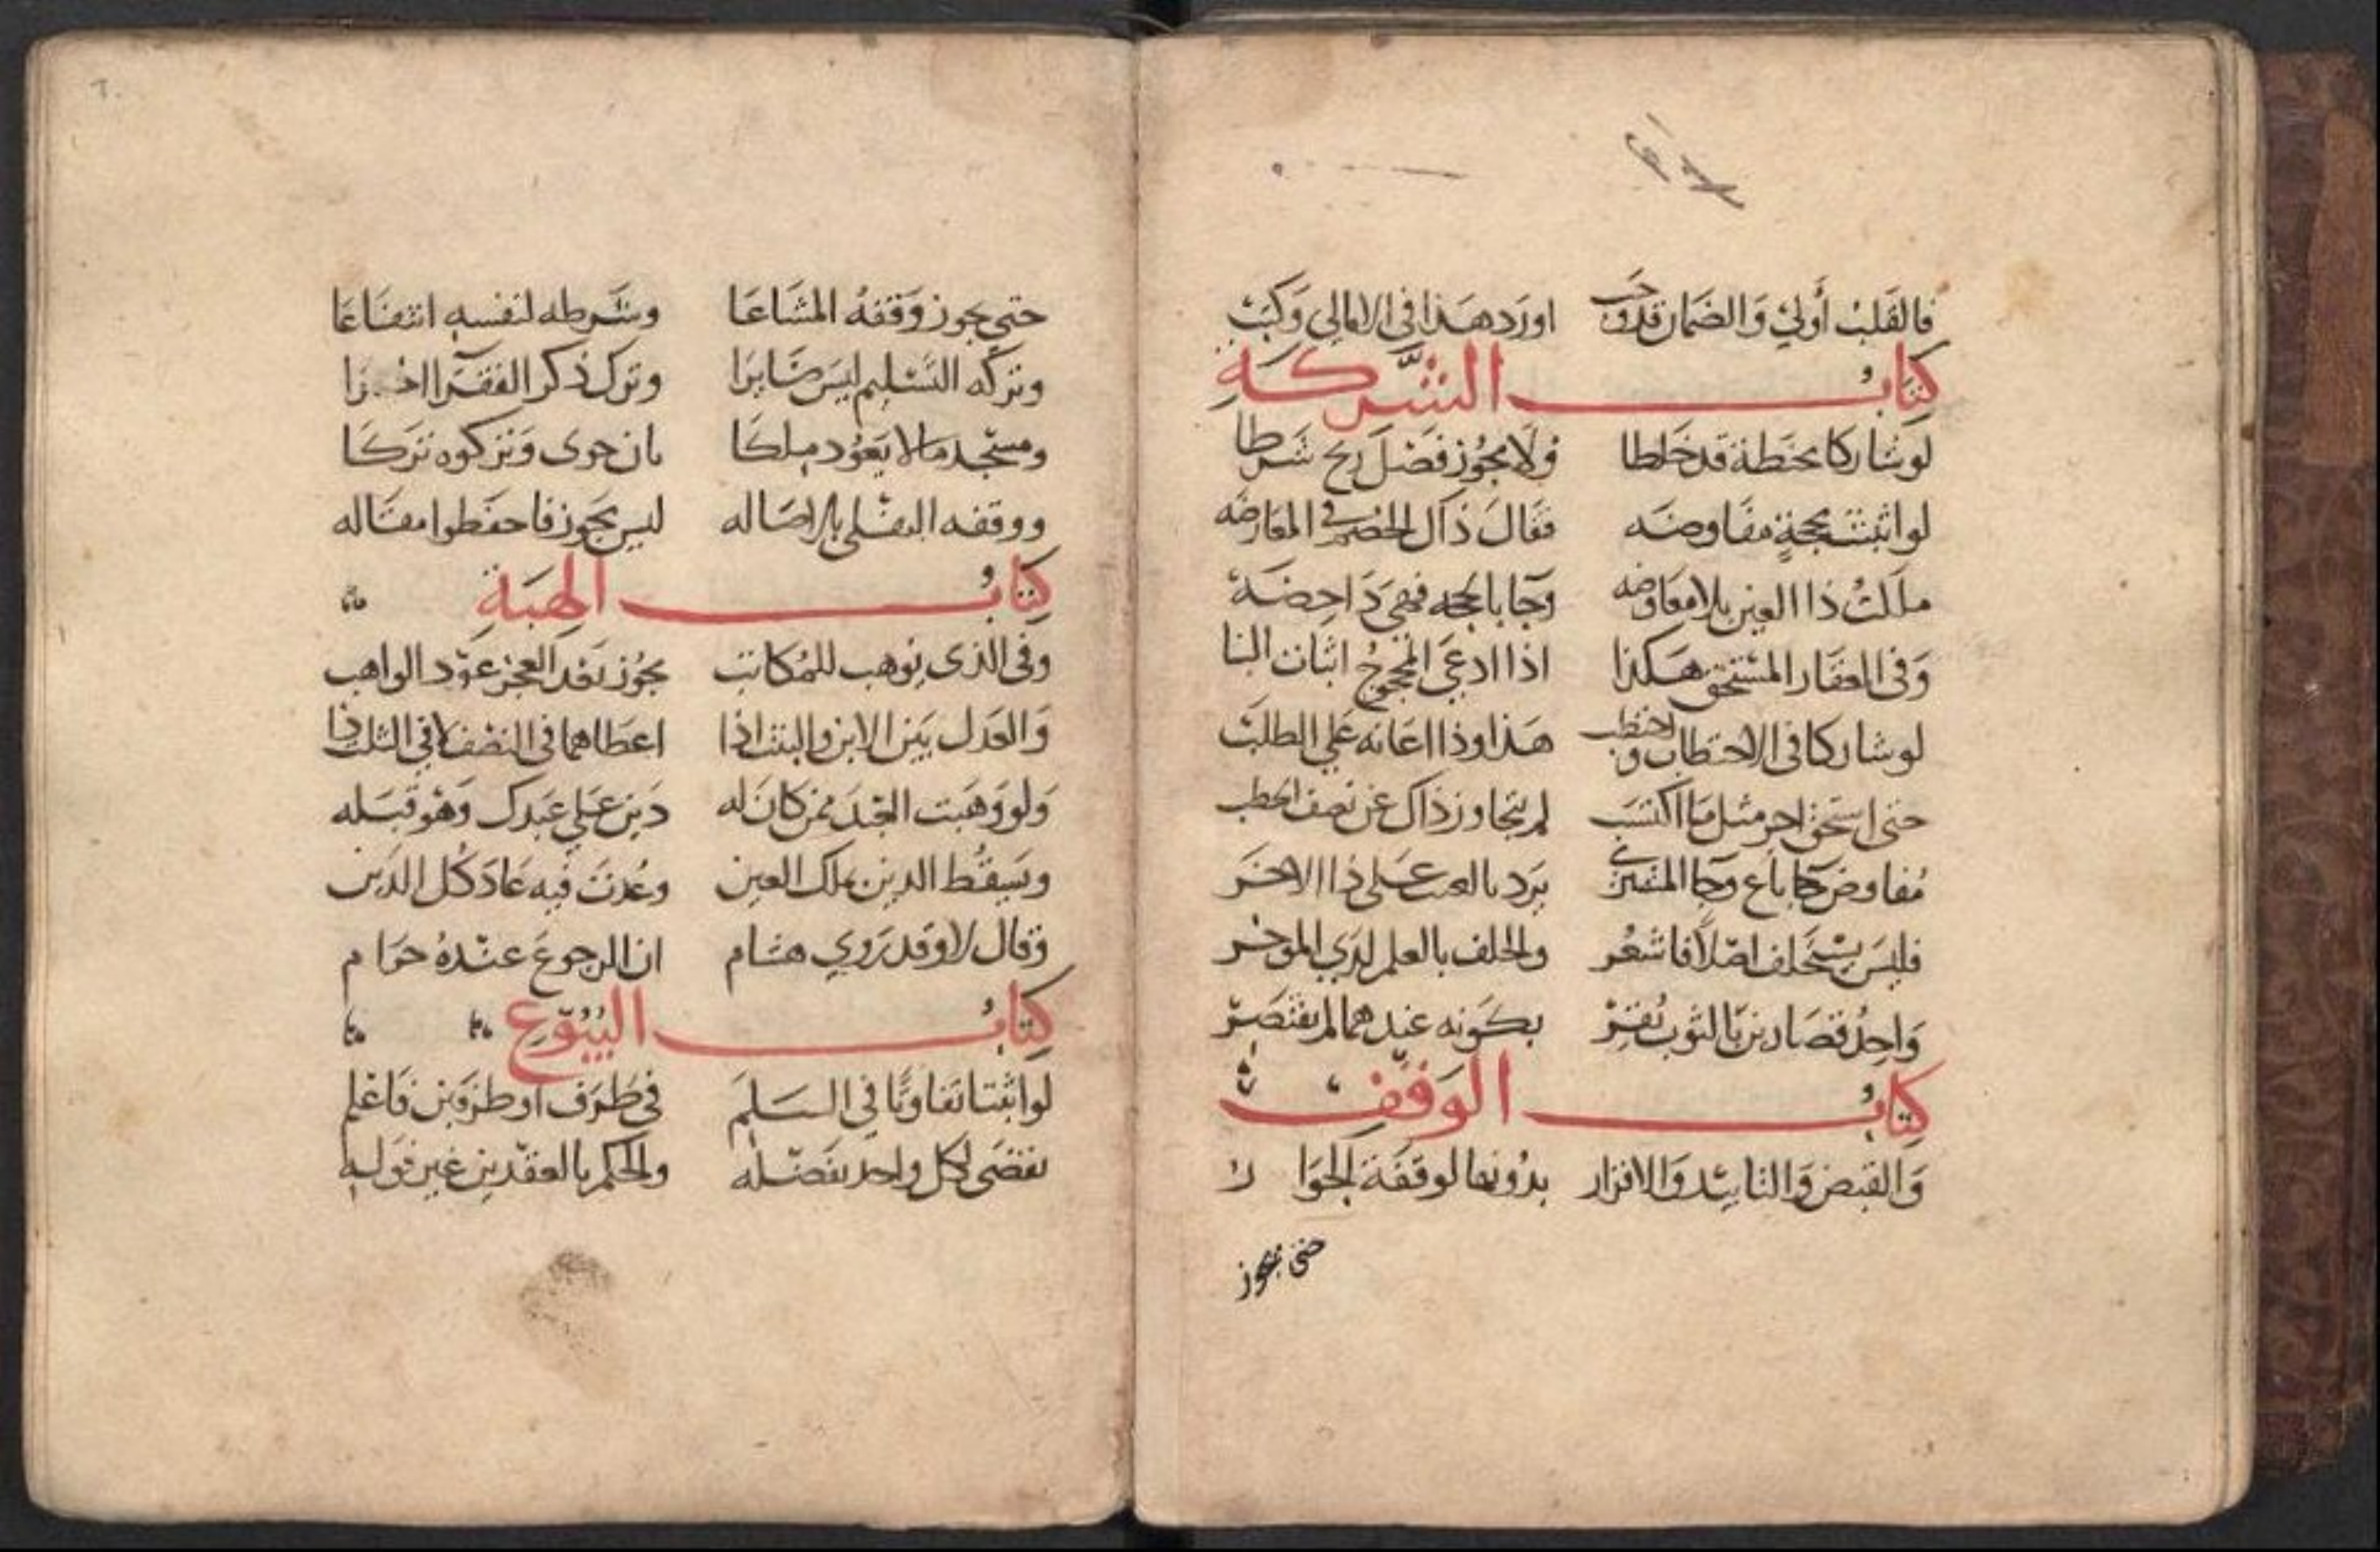 فالقلب أولى والضمان قد وجب اورد هذا في الامالي وكتب
كتاب الشركة
لو شاركا بحنطة قد خلطا ولا يجوز فضل ربح شرطا
لو اثبتت بحجة مفاوضه فقال ذاك الخصم في المعارضه
ملكت ذا العين بلا معاوضه وجا بالحجه فهي داحضة
وفي العقار المستحق هكذا اذا ادعى المحجوج اثبات البنا
لو شاركا في الاحتطاب واحتطب هذا وذا اعانه على الطلب
حتى استحق اجر مثل ما اكتسب لم يتجاوز ذاك عن نصف الحطب
مفاوض باع وجا المشتري يرد بالعيب على ذا الاخر
فليس يستحلف اصلا فاشعر والحلف بالعلم لدي الموخر
واحد قصارين بالثوب يقر بكونه عندهما لم يقتصر
كتاب الوقف
والقبض والتابيد والاقرار بدونها لوقفة الجوا ر
حتى يجوز
حتى يجوز وقفه المشاعا وشرطه لنفسه انتفاعا
وتركه التسليم ليس ضايرا وترك ذكر الفقرا
ومسجد ما لا يعود ملكا بان حوى وتركوه تركا
ووقفه النقلي بالاصاله ليس يجوز فاحفظوا مقاله
كتاب الهبة
وفي الذي يوهب للمكاتب يجوز بعد العجز عود الواهب
والعدل بين الابن والبنت اذا اعطاهما في النصف لا في الثلث ذا
ولو وهبت العبد ممن كان له دين على عبدك وهو قبله
ويسقط الدين بملك العين وعدت فيه عاد كل الدين
وقال لا وقد روي هشام ان الرجوع عنده حرام
كتاب البيوع
لو اثبتا تفاوتا في السلم في طرف او طرفين فاعلم
نقضى لكل واحد بفضله والحكم بالعقدين غير قوله